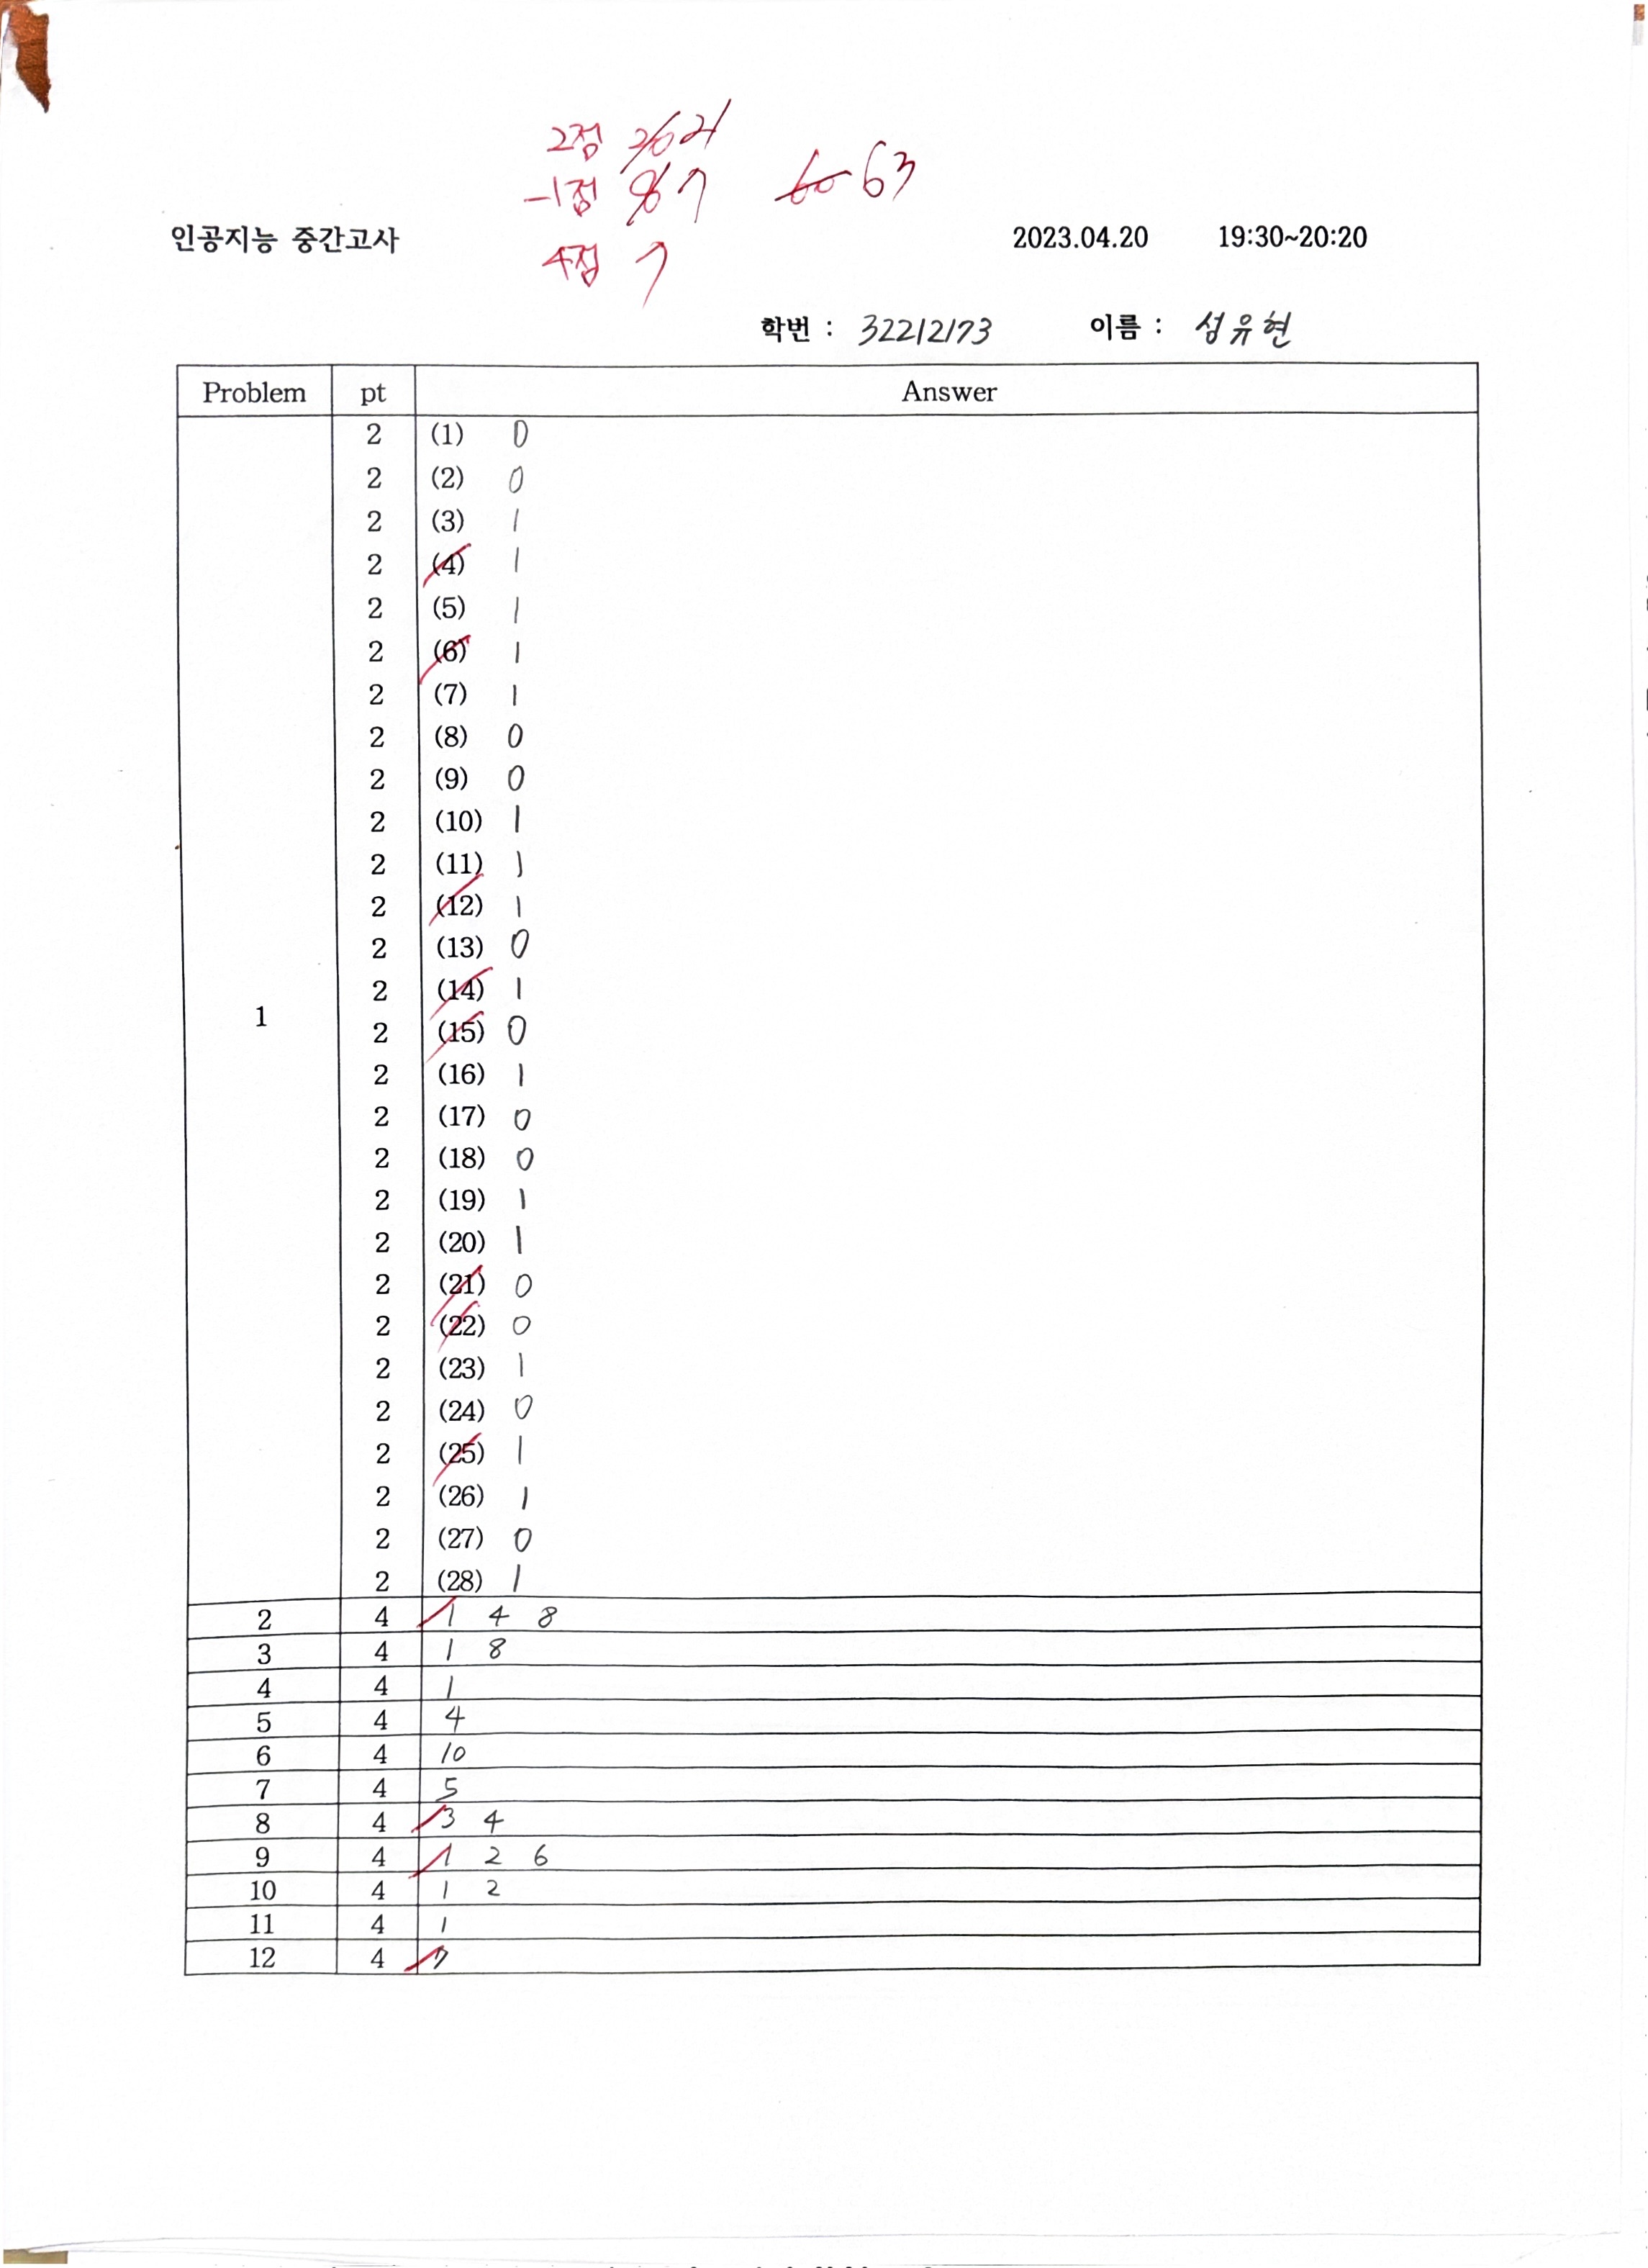 2점 20 21
-1점 8 7 60 63
인공지능 중간고사 4점 7 2023.04.20 19:30~20:20
학번 : 32212173 이름 : 성유현
Problem pt Answer
2 (1) 0
2 (2) 0
2 (3) 1
2 (4) 1
2 (5) 1
2 (6) 1
2 (7) 1
2 (8) 0
2 (9) 0
2 (10) 1
2 (11) 1
2 (12) 1
2 (13) 0
2 (14) 1
1 2 (15) 0
2 (16) 1
2 (17) 0
2 (18) 0
2 (19) 1
2 (20) 1
2 (21) 0
2 (22) 0
2 (23) 1
2 (24) 0
2 (25) 1
2 (26) 1
2 (27) 0
2 (28) 1
2 4 1 4 8
3 4 1 8
4 4 1
5 4 4
6 4 10
7 4 5
8 4 3 4
9 4 1 2 6
10 4 1 2
11 4 1
12 4 7